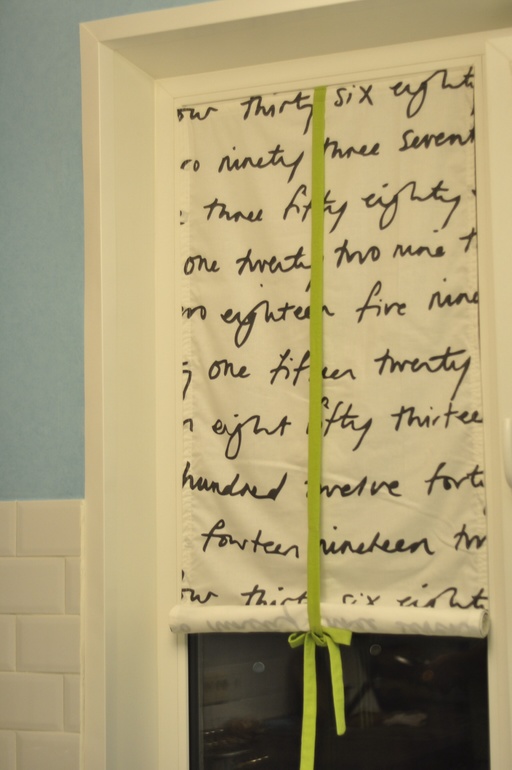 ow thirty six eight
ro ninety three sevent
three fifty eighty
one twenty two nine t
wo eighteen five nine
one fifteen twenty
n eight fifty thirtee
hundred twelve fort
fourteen nineteen tw
ow thirty six eight